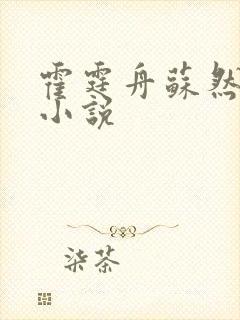 霍霆舟蘇然
小說
柒茶